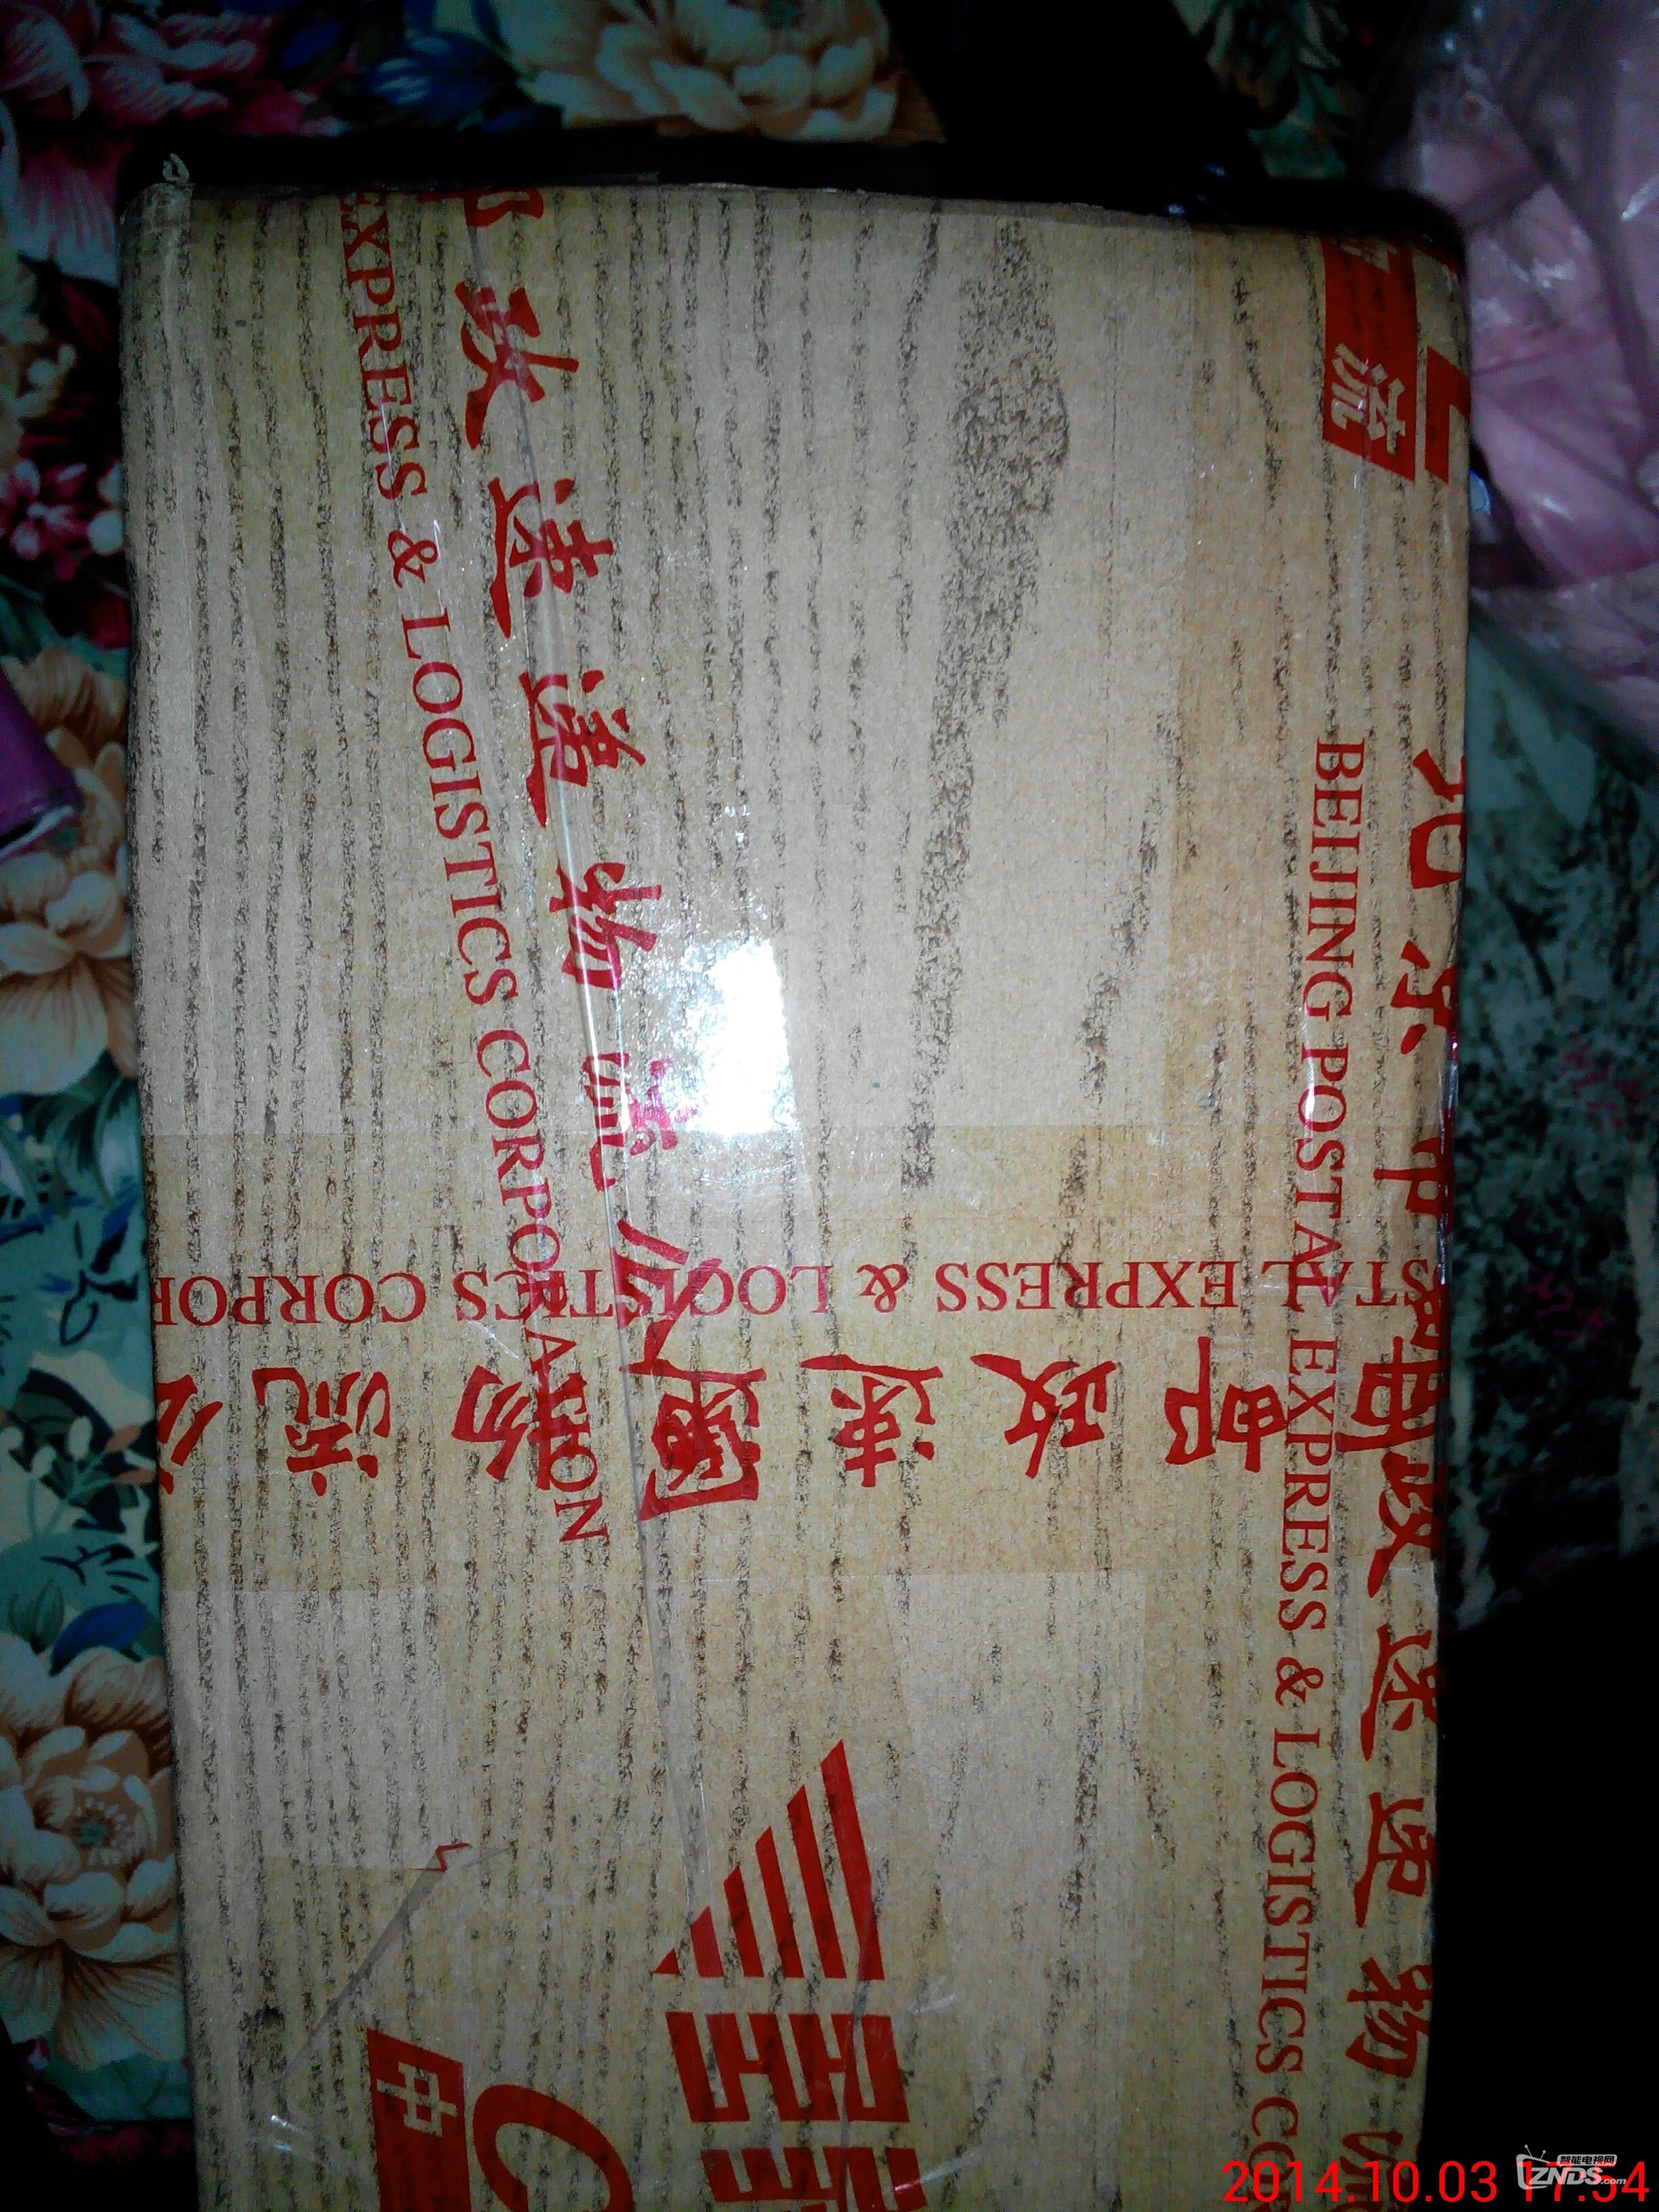 邮政速递物流公司
EXPRESS & LOGISTICS CORPORATION
流
北京市邮政速递物流
BEIJING POSTAL EXPRESS & LOGISTICS CO
STAL EXPRESS & LOGISTICS CORPOR
邮政速递物流公
中
C
2014.10.03 17:54
智能电视网
ZNDS.com